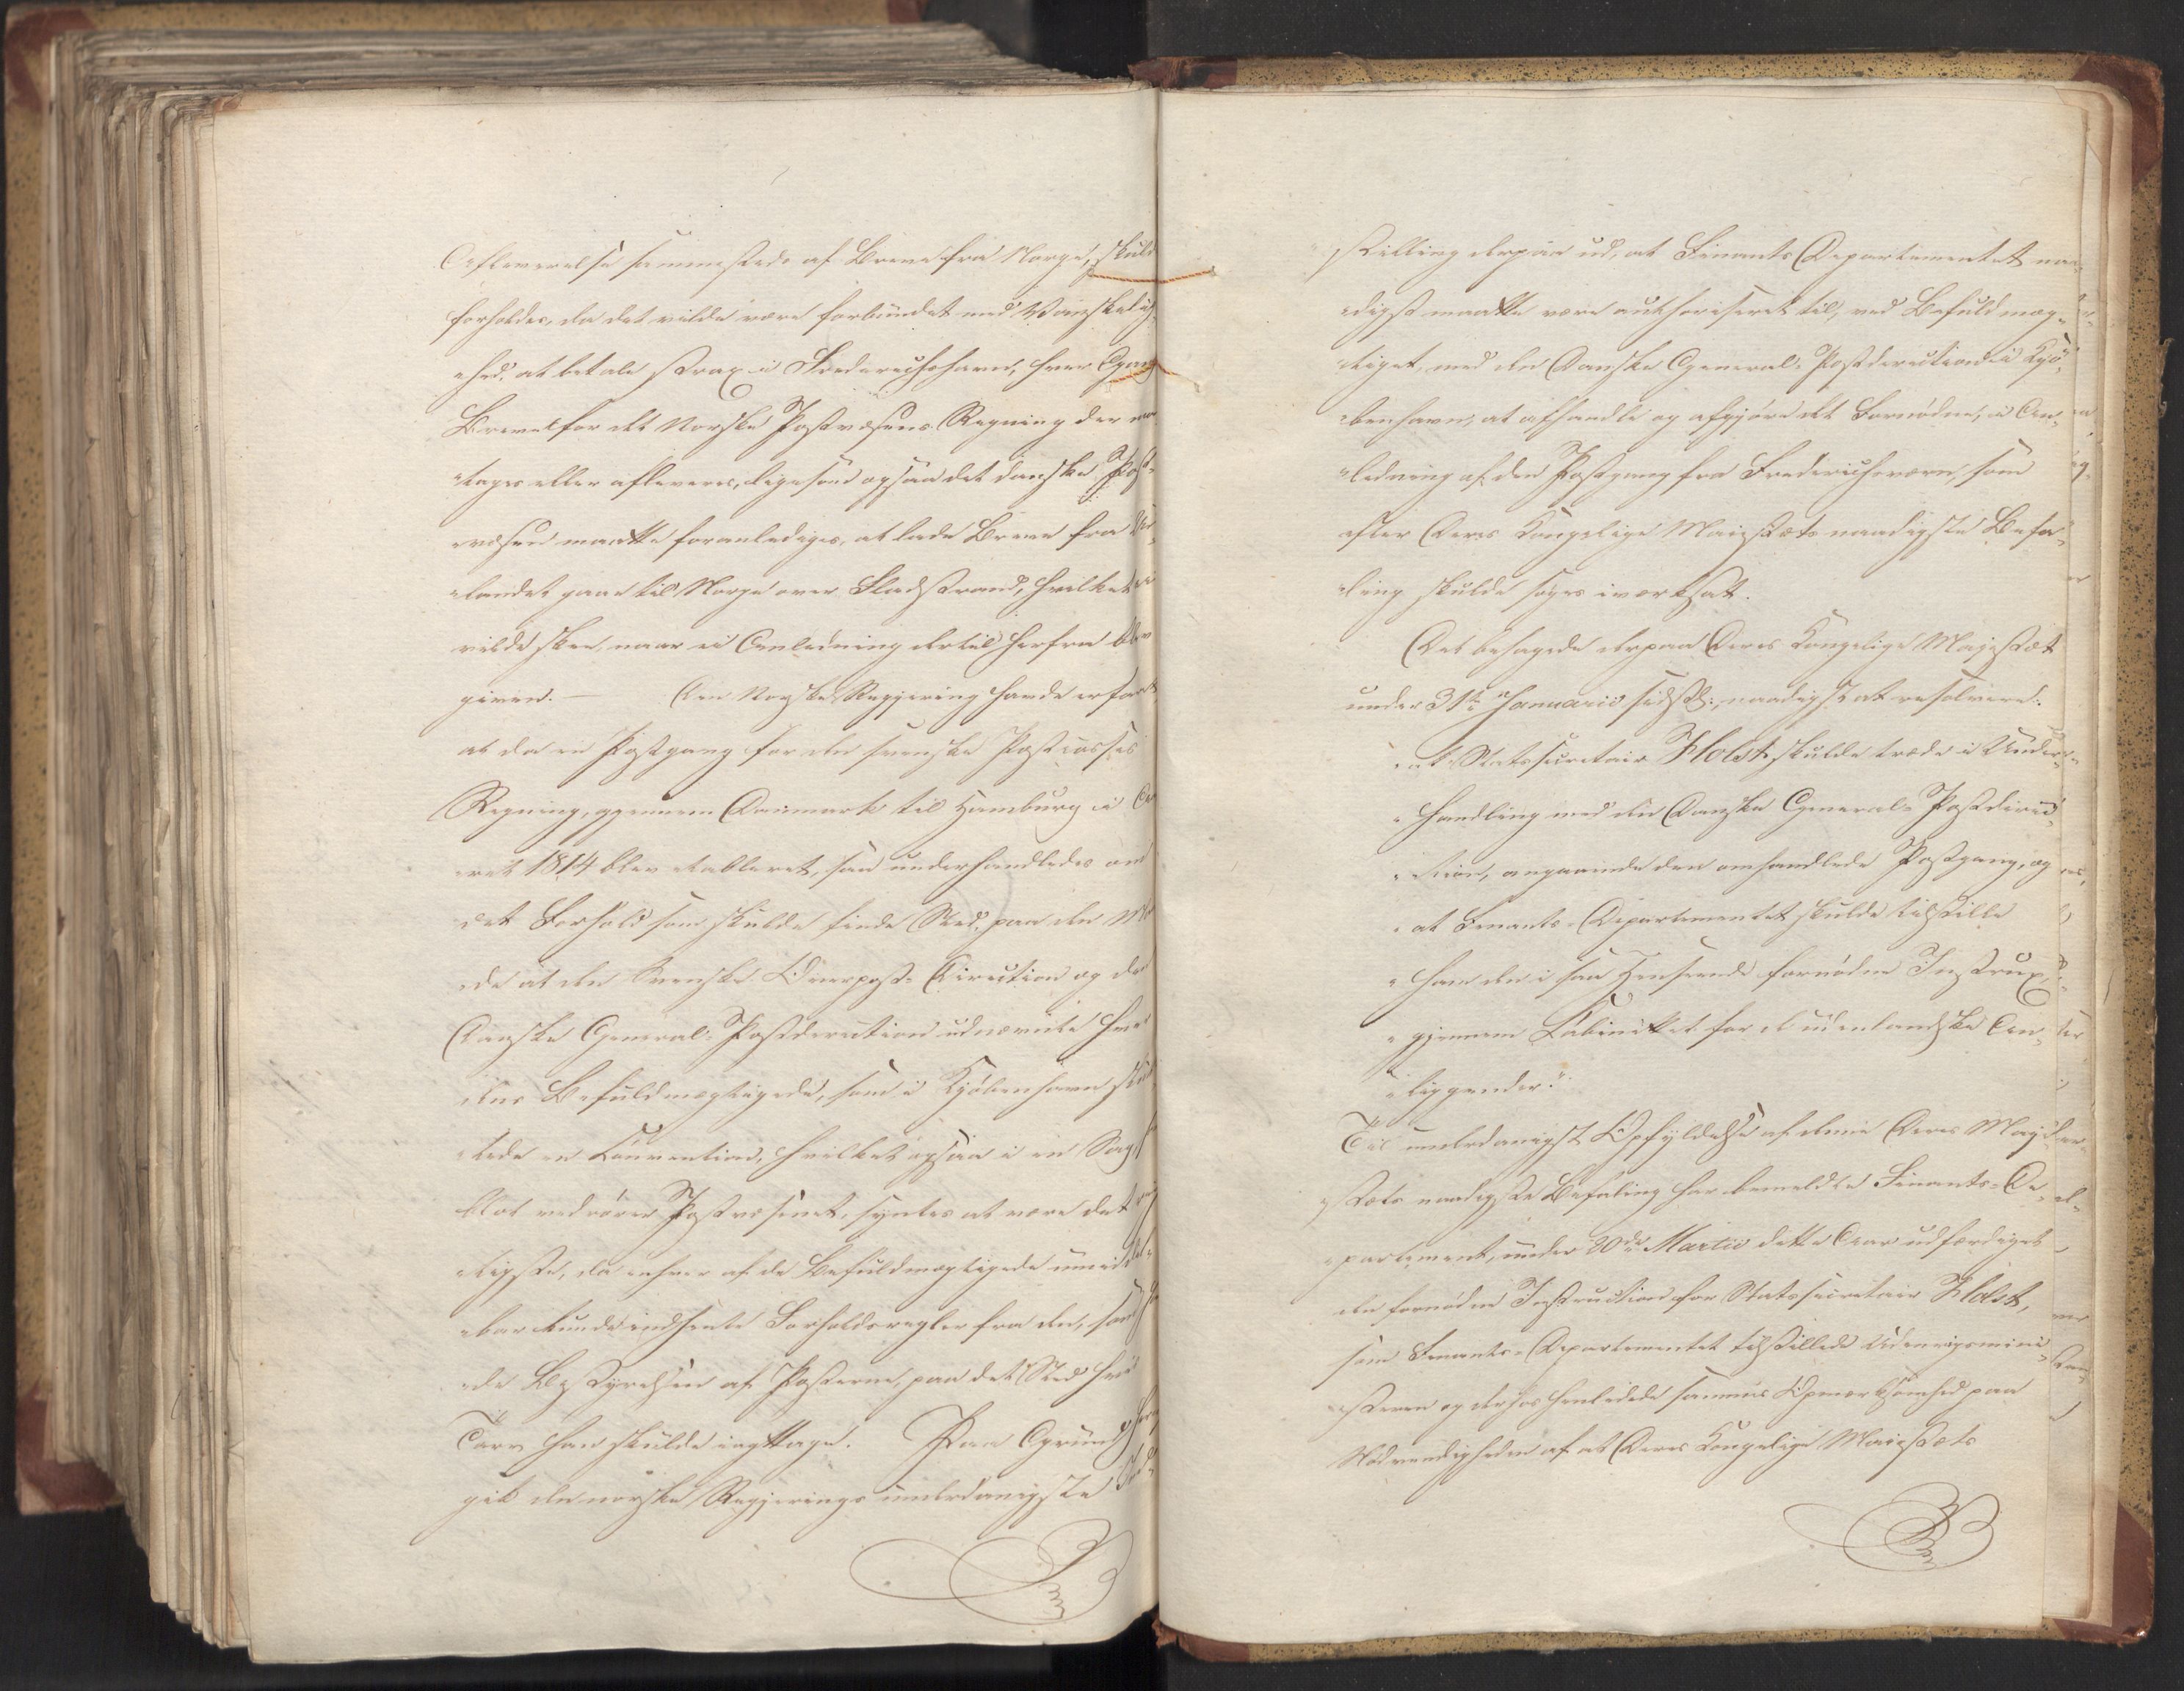 Afleverelse sammesteds af Breve fra Norge, skuld
forholdes, da det vilde være forbundet med Vanskelig¬
¬hed, at betale strax i Frederichshavn, hver Gang
Breve for det Norske Postvæsens Regning der mod¬
¬tages eller afleveres, ligesom ogsaa det danske Post¬
¬væsen maatte foranlediges, at lade Breve fra Ud¬
¬landet gaae til Norge over Fladstrand, hvilket ei
vilde skee, naar ei Anledning dertil herfra blev
given. — Den Norske Regjering havde erfaret,
at da en Postgang for den svenske Postcasses
Regning, gjennem Danmark til Hamburg i Aa¬
¬ret 1814 blev etableret, saa underhandledes om
det Forhold som skulde finde Sted, paa den Maa¬
¬de at den Svenske Overpost-Direction og den
Danske General-Postdirection udnævnte hver
deres Befuldmægtigede, som i Kjöbenhavn slut¬
¬tede en Convention, hvilket ogsaa i en Sag,
blot vedrörer Postvæsenet, syntes at være det rig¬
¬tigste, da enhver af de Befuldmægtigede umiddel¬
¬bar kunde indhente Forholdsregler fra den, som
¬de Bestyrelsen af Posterne, paa det Sted hvis
Tarv han skulde iagttage. Paa Grund heraf
gik den norske Regjerings underdanigste Ind¬
stilling derpaa ud, at Finants Departementet naa¬
¬digst maatte være authoriseret til, ved Befuldmæg¬
¬tiget, med den Danske General-Postdirection i Kjö¬
¬benhavn, at afhandle og afgjöre det Fornödne, i An¬
¬ledning af den Postgang fra Frederichsværn, som
efter Deres Kongelige Maiestæts naadigste Befa¬
¬ling skulde söges iværksat.
Det behagede derpaa Deres Kongelige Majestæt
under 31te Januario sidstl:, naadigst at resolvere:
"at Statssecretair Holst skulde træde i Under¬
"handling med den Danske General-Postdirec¬
"tion, angaaende den omhandlede Postgang, og
"at Finants-Departementet skulde tilstille
"ham den i saa Henseende fornödne Instrux,
"gjennem Cabinettet for de udenlandske An¬
"liggender."
Til underdanigst Opfyldelse af denne Deres Maje¬
¬stæts naadigste Befaling har bemeldte Finants-De¬
¬partement, under 20de Martii dette Aar udfærdiget
den fornödne Instruction for Statssecretair Holst,
som Finants-Departementet tilstillede Udenrigsmini¬
¬steren og derhos henledede sammes Opmærksomhed paa
Nödvendigheden af at Deres Kongelige Maiestæts